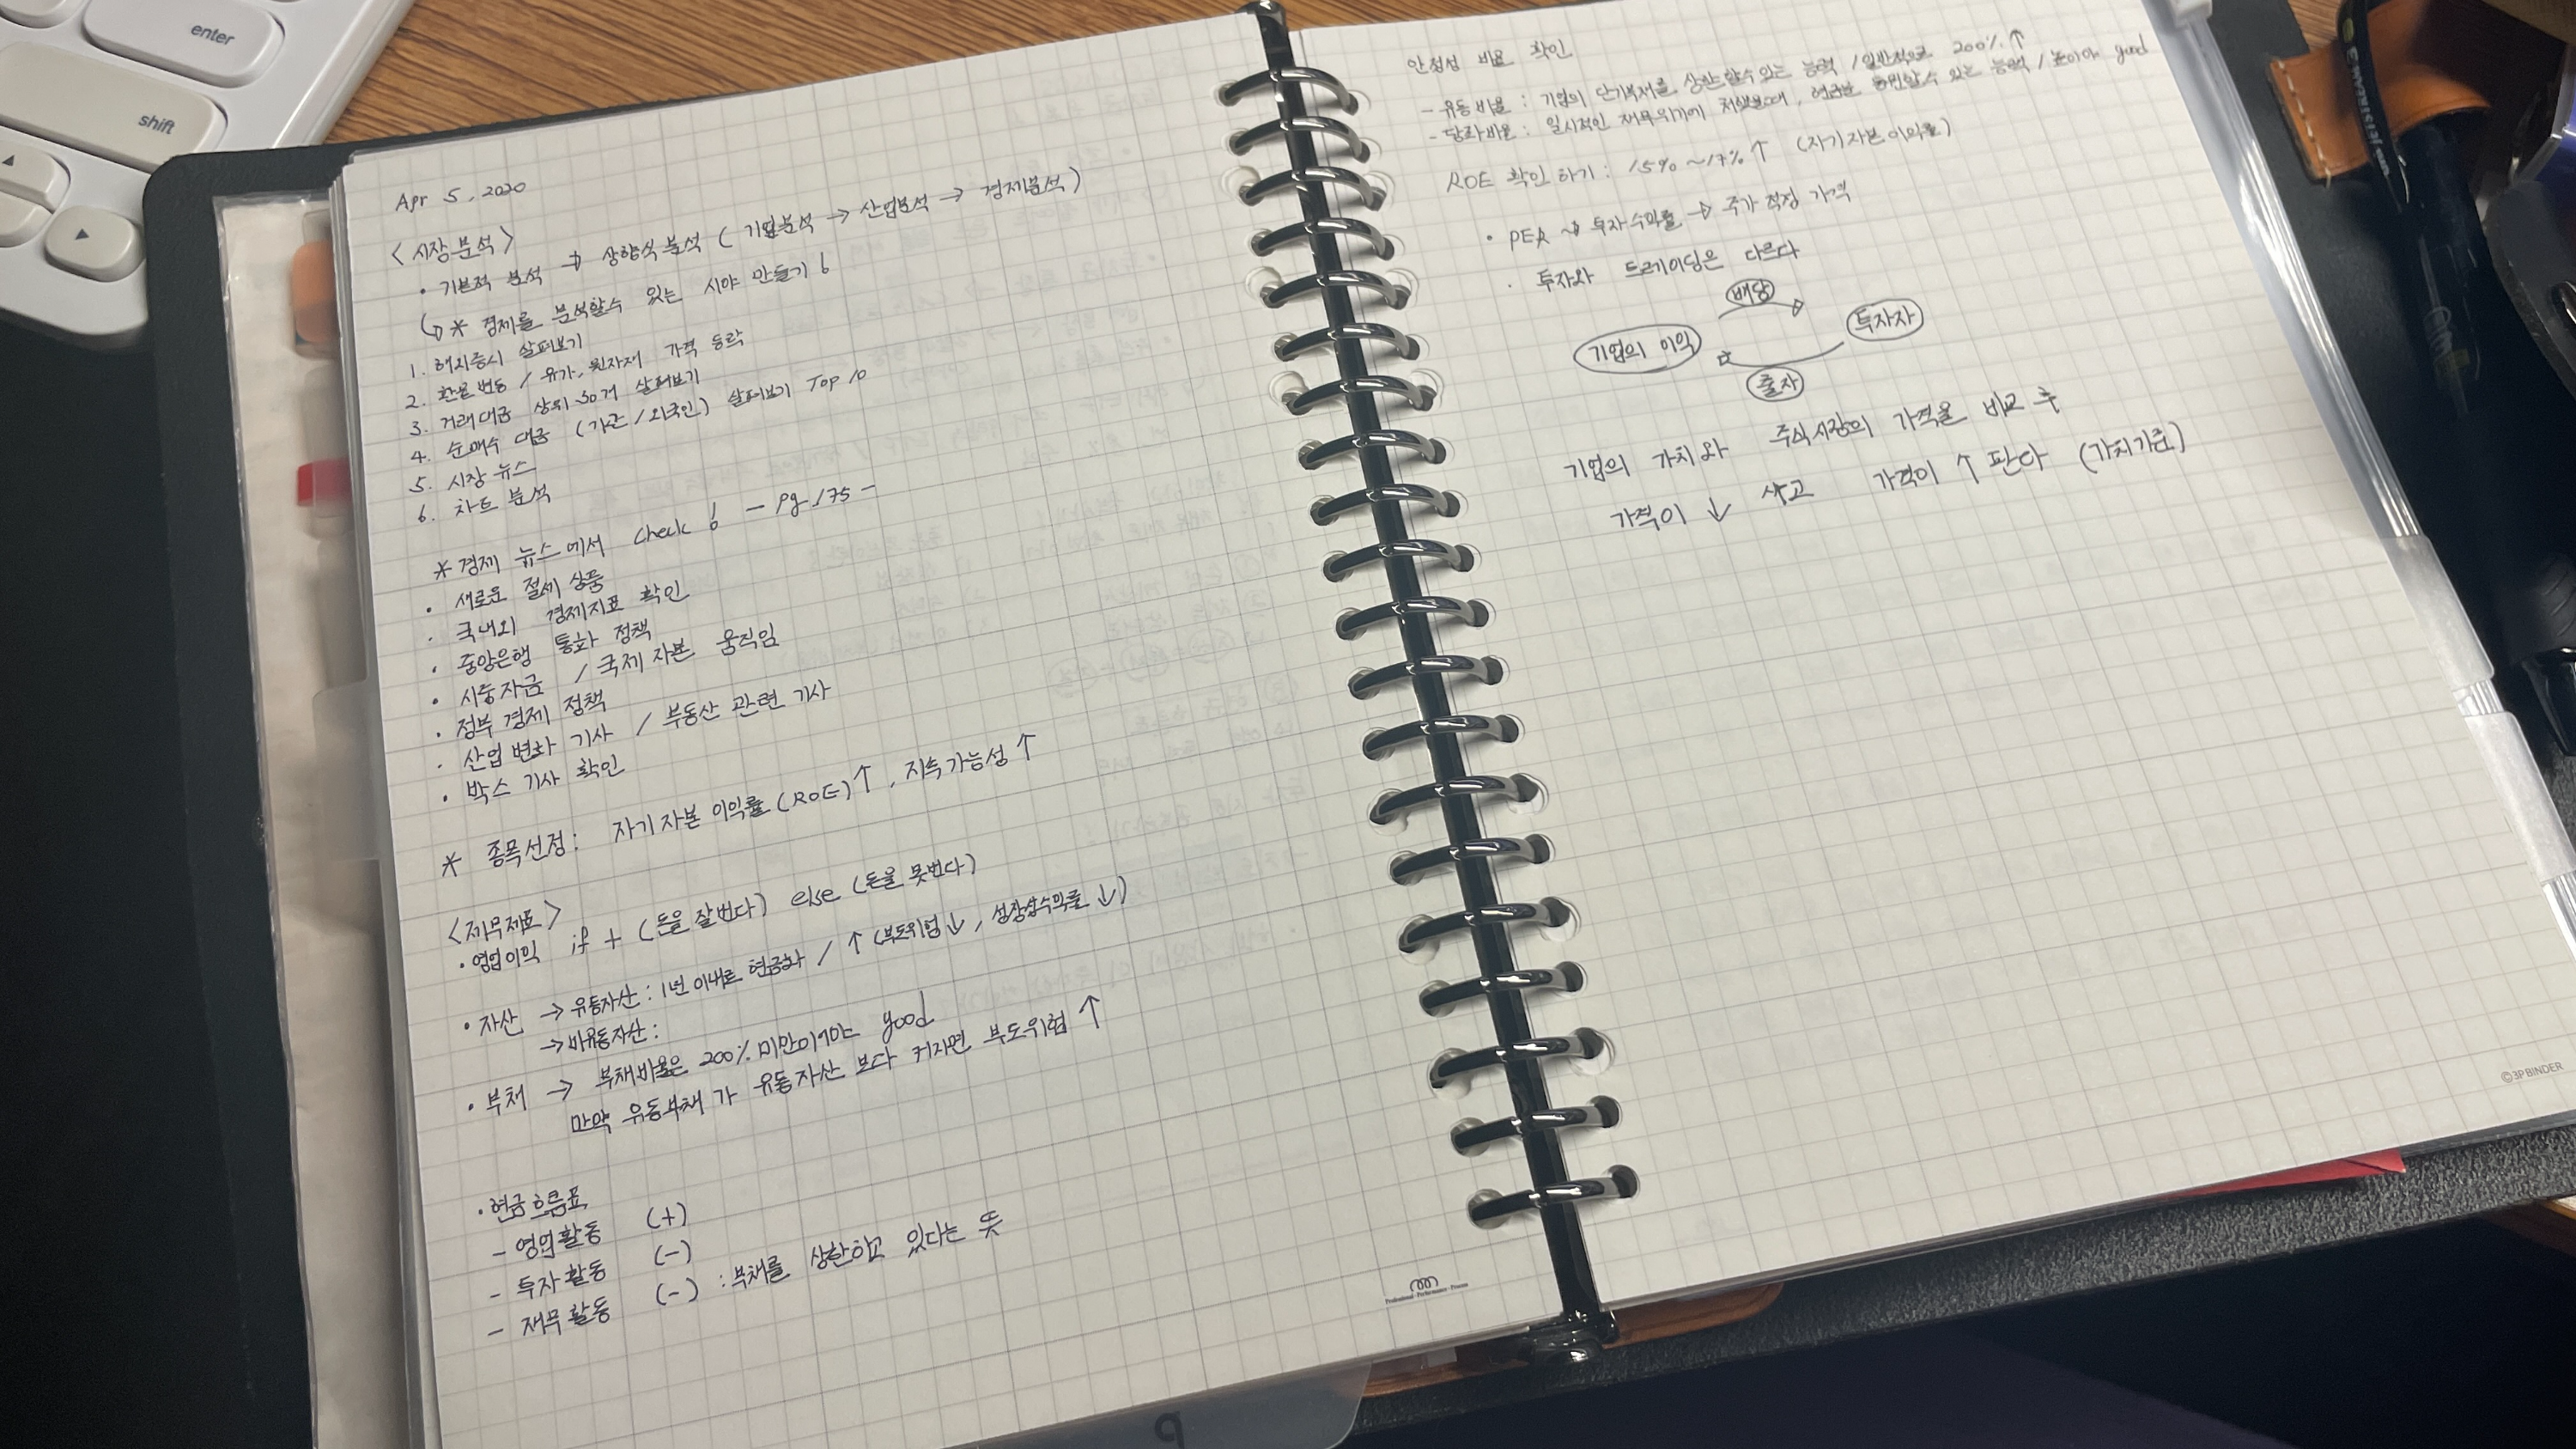 enter
shift
Apr 5, 2020
<시장분석>
• 기본적 분석 → 상향식 분석 (기업분석 → 산업분석 → 경제분석)
* 경제를 분석할수 있는 시야 만들기!
1. 해외증시 살펴보기
2. 환율변동 / 유가, 원자재 가격 등락
3. 거래대금 상위 30개 살펴보기
4. 순매수 대금 (기관/외국인) 살펴보기 Top 10
5. 시장 뉴스
6. 차트 분석
* 경제 뉴스에서 check! - Pg.175 -
• 새로운 절세 상품
• 국내외 경제지표 확인
• 중앙은행 통화 정책
• 시중자금 / 국제 자본 움직임
• 정부 경제 정책
• 산업 변화 기사 / 부동산 관련 기사
• 박스 기사 확인
* 종목선정: 자기자본 이익률 (ROE)↑, 지속가능성↑
<재무제표>
• 영업이익 if + (돈을 잘번다) else (돈을 못번다)
• 자산 → 유동자산 : 1년 이내로 현금화 / ↑ (부도위험↓, 성장성수익률↓)
→ 비유동자산 :
• 부채 → 부채비율은 200% 미만이어야 good
만약 유동부채 가 유동자산 보다 커지면 부도위험 ↑
• 현금흐름표
- 영업활동 (+)
- 투자활동 (-)
- 재무활동 (-) : 부채를 상환하고 있다는 뜻
Professional · Performance · Process
9
안정성 비율 확인
- 유동비율 : 기업의 단기부채를 상환할수 있는 능력 / 일반적으로 200%↑
- 당좌비율 : 일시적인 재무위기에 처했을때, 현금을 동원할수 있는 능력 / 높아야 good
ROE 확인하기 : 15% ~17%↑ (자기자본이익률)
• PER → 투자수익률 → 주가 적정 가격
• 투자와 트레이딩은 다르다
배당
기업의 이익
투자자
출자
기업의 가치와 주식시장의 가격을 비교 후
가격이 ↓ 사고 가격이 ↑ 판다 (가치기준)
©3PBINDER